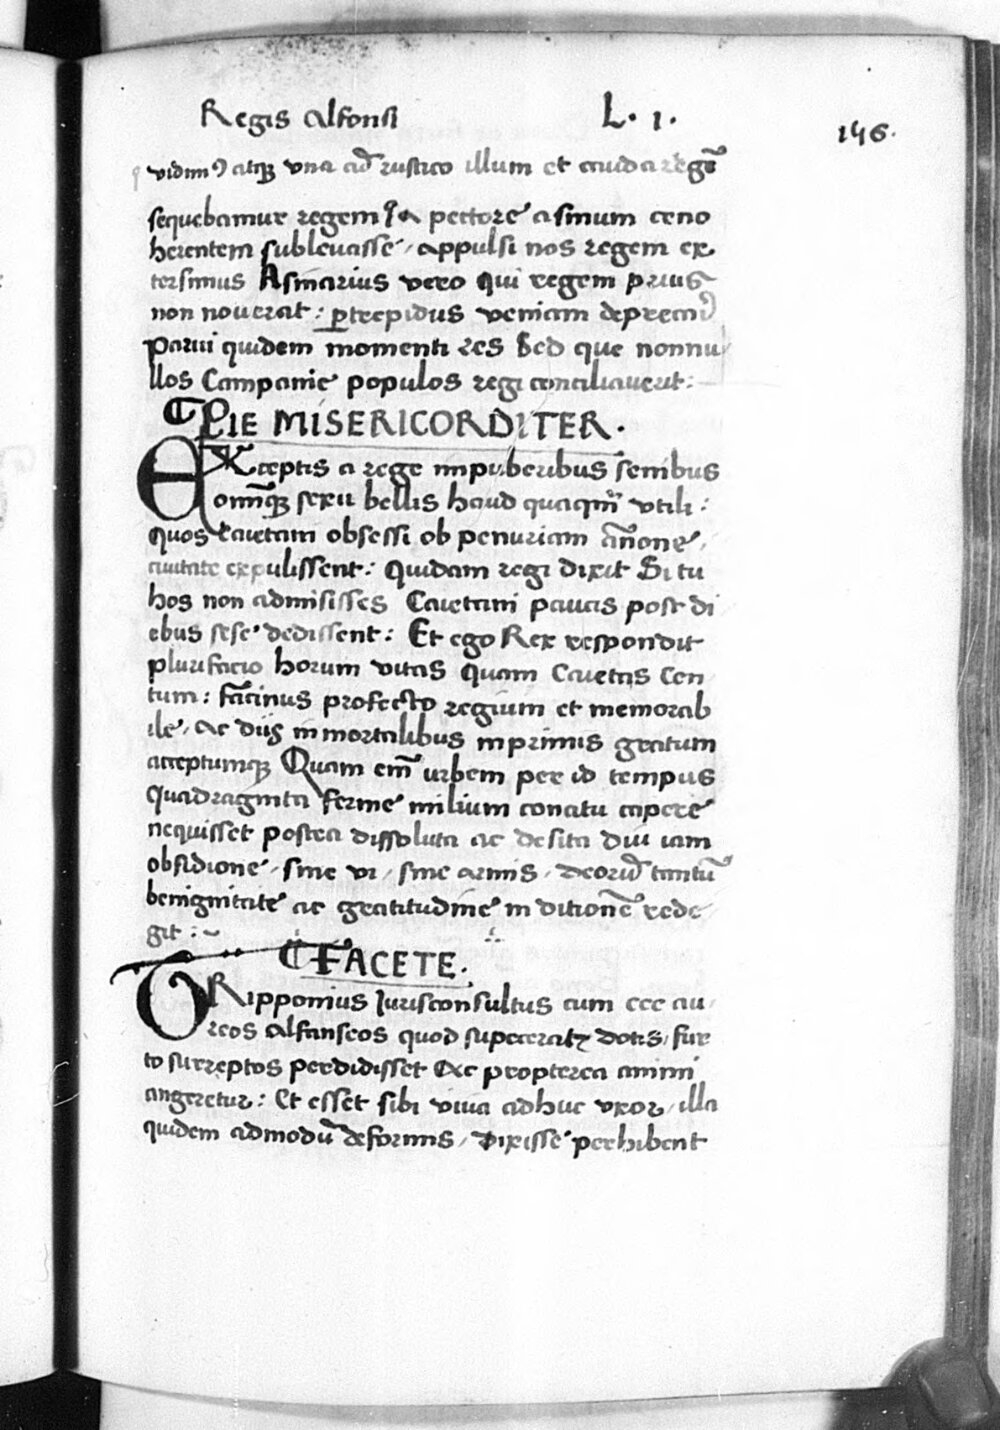 Regis Alfonsi L. 1.
146.
vidim9 atq3 vna ad rustico illum et cauda regē
sequebamur regem qa pectore asinum ceno
herentem subleuasse, appulsi nos regem ex
tersimus Asinarius vero qui regem prius
non nouerat: ꝑtrepidus veniam deprecat9
Parui quidem momenti res Sed que nonnu
llos Campanie populos regi conciliauerit:
PIE MISERICORDITER.
EXceptis a rege impuberibus senibus
omniq3 sexu bellis haud quaqm̄ vtili:
quos Caietani obsessi ob penuriam añone,
ciuitate expulissent: Quidam regi dixit Si tu
hos non admisisses Caietani paucis post di
ebus sese dedissent: Et ego Rex respondit
plurifacio horum vitas quam Caietas Cen
tum: facinus profecto regium et memorab
ile, ac diis inmortalibus inprimis gratum
acceptumq3 Quam em̄ urbem per id tempus
quadraginta ferme milium conatu capere
nequisset postea dissoluta ac desita diu iam
obsidione, sine vi, sine armis, deorū tantū
benignitate ac gratitudine in ditionē rede
git:
FACETE.
ORipponius Jurisconsultus cum ccc au
reos alfanseos quod supererat dotis, fur
to surreptos perdidisset Ac propterea animi
angeretur: Et esset sibi viua adhuc vxor, illa
quidem admodū deformis, Dixisse perhibent